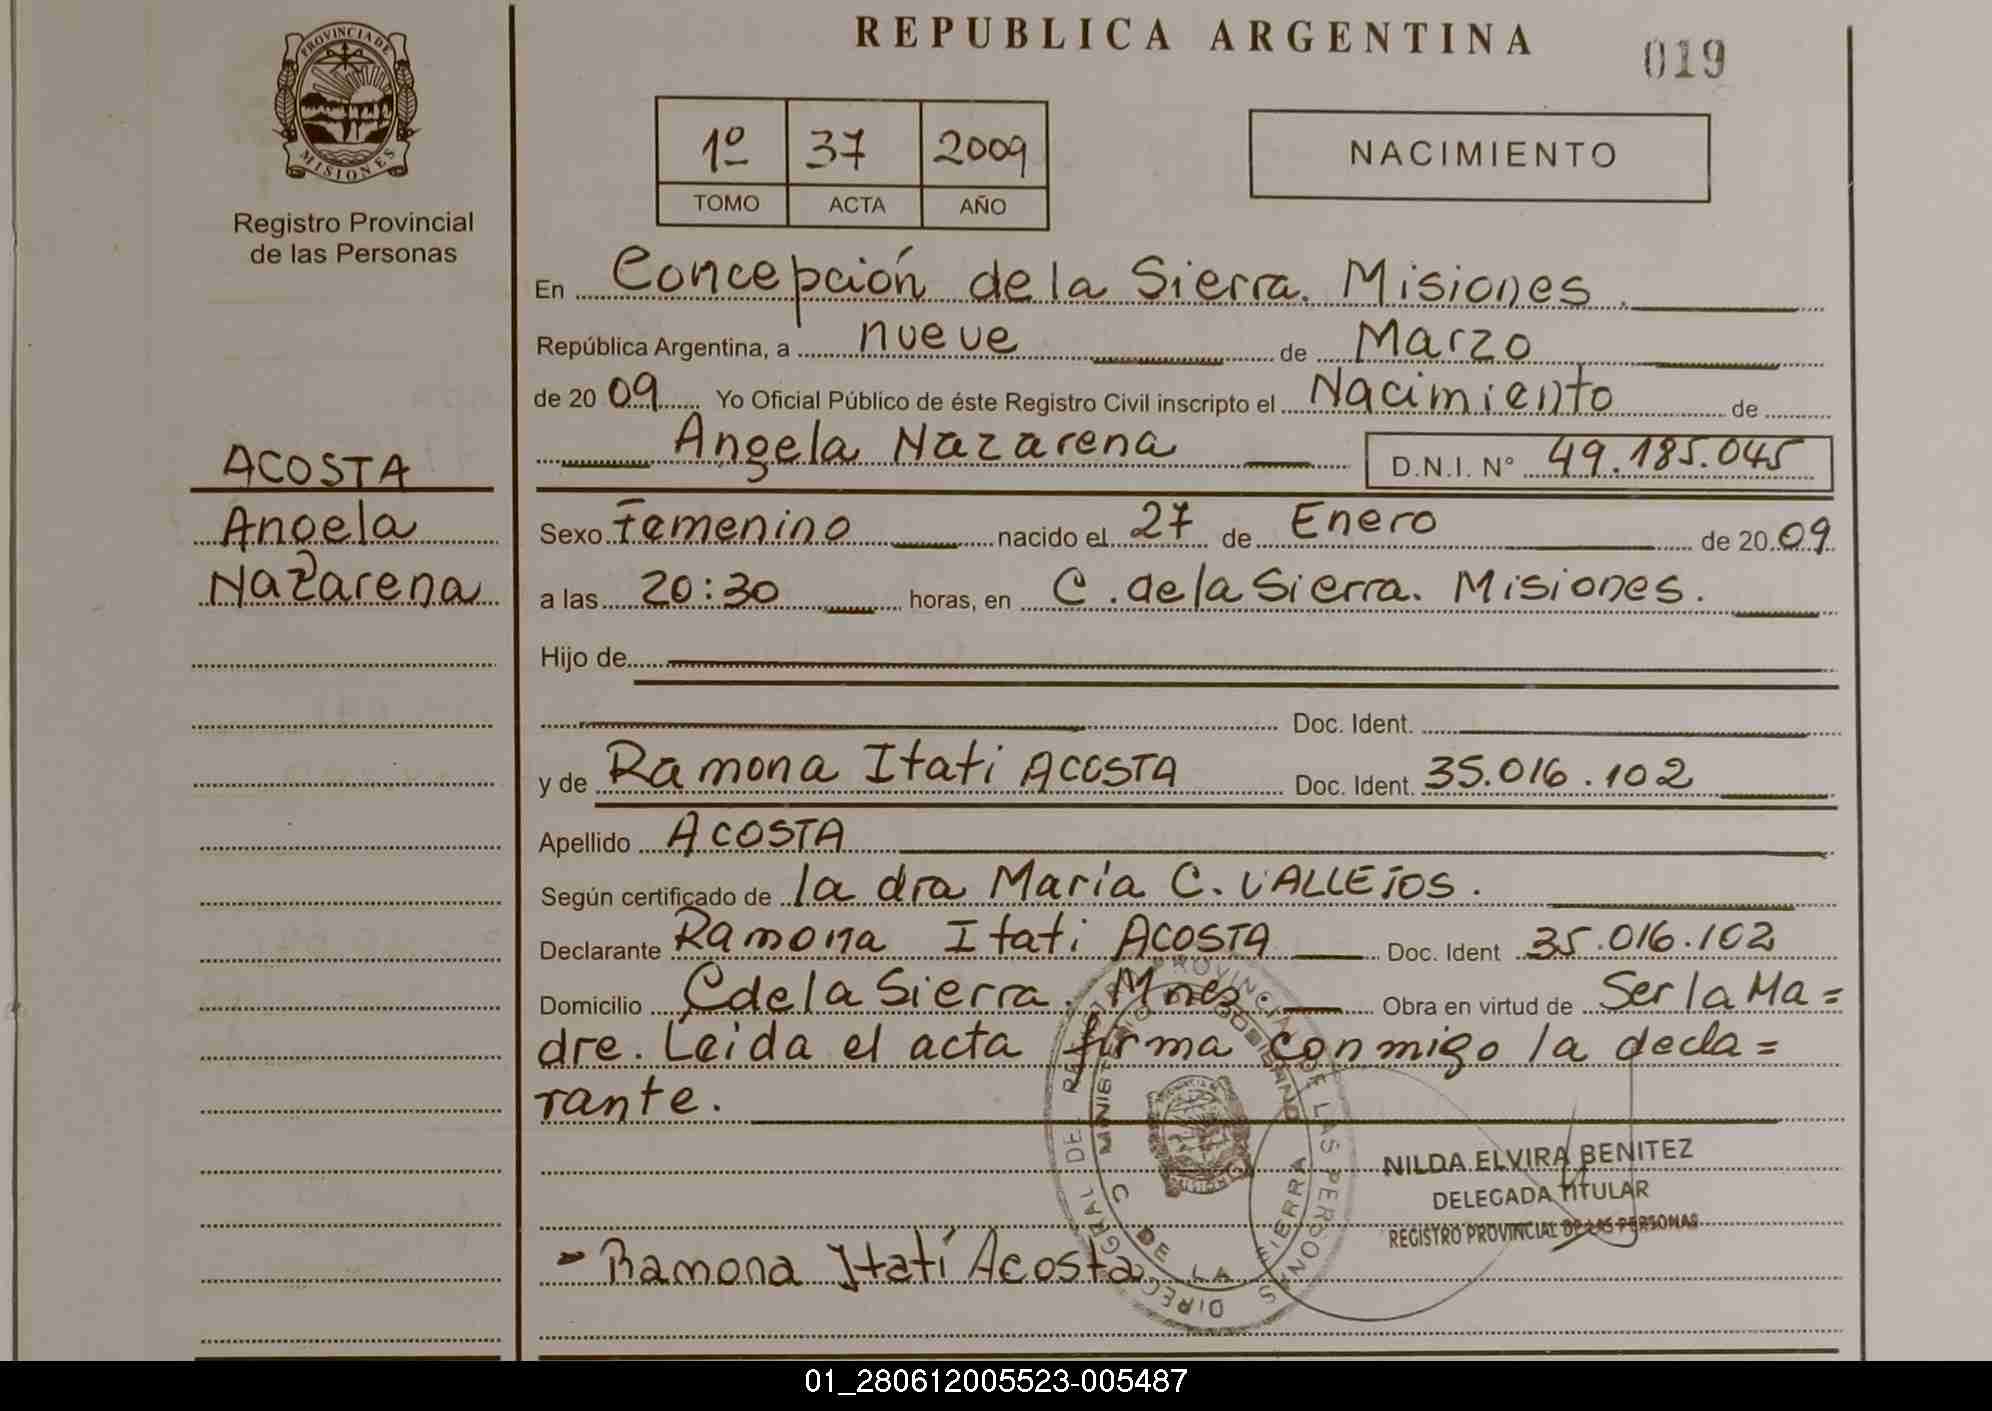 REPUBLICA ARGENTINA
019
PROVINCIA DE
MISIONES
Registro Provincial
de las Personas
1º 37 2009
TOMO ACTA AÑO
NACIMIENTO
En Concepción de la Sierra. Misiones.
República Argentina, a nueve de Marzo
de 2009 Yo Oficial Público de éste Registro Civil inscripto el Nacimiento de
Angela Nazarena D.N.I. N° 49.185.045
ACOSTA
Angela
Nazarena
Sexo Femenino nacido el 27 de Enero de 2009
a las 20:30 horas, en C. de la Sierra. Misiones.
Hijo de
Doc. Ident.
y de Ramona Itati ACOSTA Doc. Ident. 35.016.102
Apellido ACOSTA
Según certificado de la dra María C. VALLEJOS.
Declarante Ramona Itati ACOSTA Doc. Ident 35.016.102
Domicilio C de la Sierra. Mnes. Obra en virtud de Ser la Ma=
dre. Leida el acta firma conmigo la decla=
rante.
NILDA ELVIRA BENITEZ
DELEGADA TITULAR
REGISTRO PROVINCIAL DE LAS PERSONAS
- Ramona Itatí Acosta
C DE LA SIERRA
01_280612005523-005487